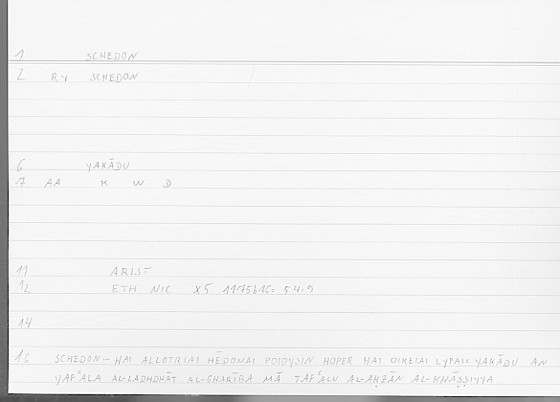 1 SCHEDON
2 RY SCHEDON
6 YAKĀDU
7 AA K W D
11 ARIST
12 ETH NIC X5 1175b16: 54.9
14
16 SCHEDON – HAI ALLOTRIAI HĒDONAI POIOYSIN HOPER HAI OIKEIAI LYPAI: YAKĀDU AN
YAFʿALA AL-LADHDHĀT AL-GHARĪBA MĀ TAFʿALU AL-AḤZĀN AL-KHĀṢṢIYYA